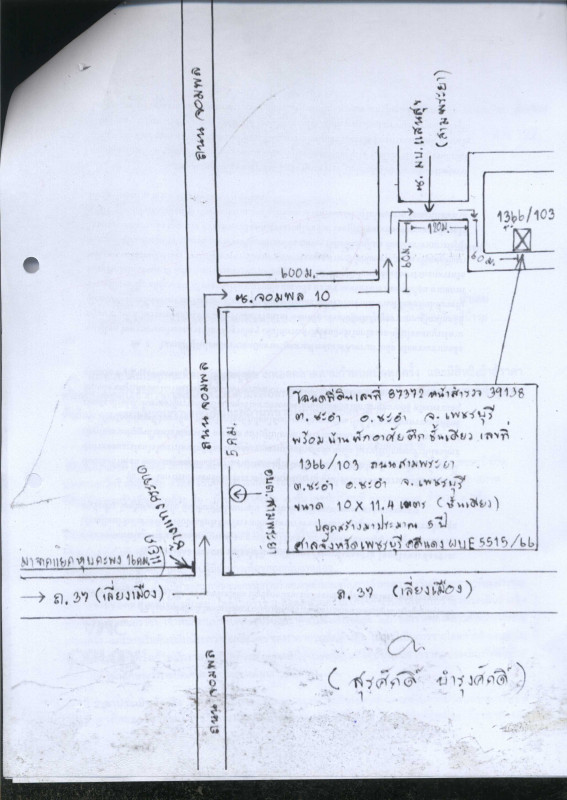 ถนน จอมพล
ซ. มบ.แสนสุข
(สามพระยา)
1366/103
180ม.
60ม.
60ม.
600ม.
ซ.จอมพล 10
ถนน จอมพล
5 คม.
อบต.สามพระยา
โฉนดที่ดินเลขที่ 87372 หน้าสำรวจ 39138
ต. ชะอำ อ.ชะอำ จ. เพชรบุรี
พร้อมบ้านพักอาศัยตึกชั้นเดียว เลขที่
1366/103 ถนนสามพระยา
ต.ชะอำ อ.ชะอำ จ. เพชรบุรี
ขนาด 10 X 11.4 เมตร (ชั้นเดียว)
ปลูกสร้างมาประมาณ 5 ปี
ศาลจังหวัดเพชรบุรี คดีแดง ผบE 5515/66
มาจากแยกหุบกะพง 16คม.
ถ.37 (เลี่ยงเมือง)
ถ.37 (เลี่ยงเมือง)
ถนน จอมพล
(สุรศักดิ์ บำรุงศักดิ์)